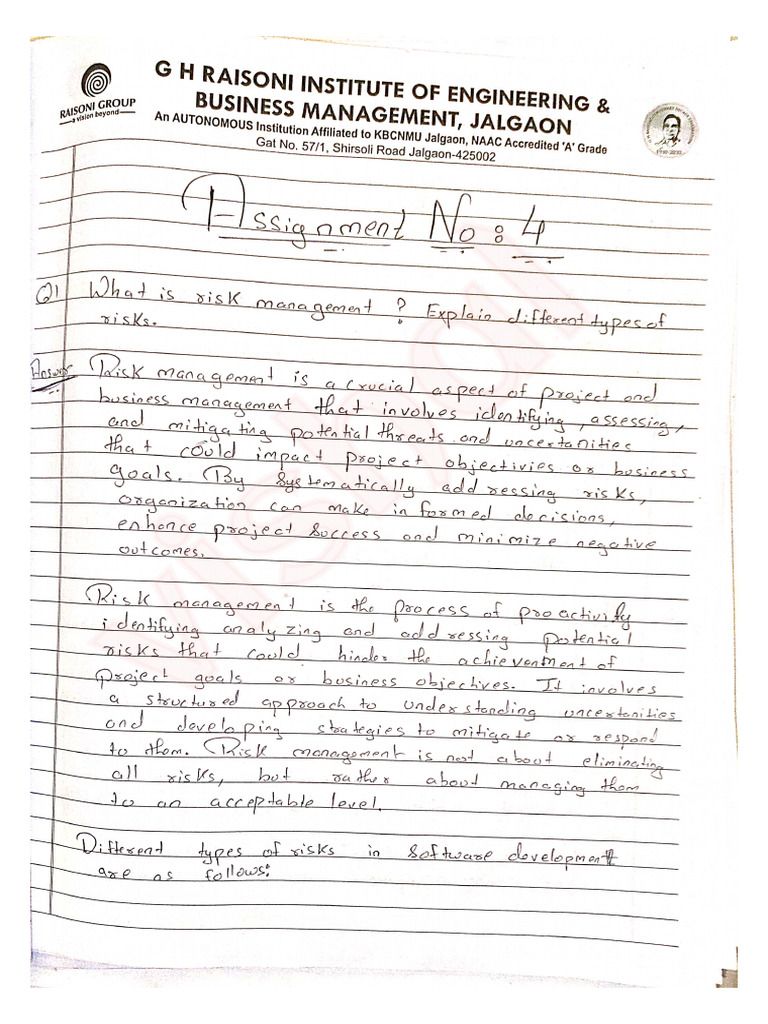 G H RAISONI INSTITUTE OF ENGINEERING &
BUSINESS MANAGEMENT, JALGAON
An AUTONOMOUS Institution Affiliated to KBCNMU Jalgaon, NAAC Accredited 'A' Grade
Gat No. 57/1, Shirsoli Road Jalgaon-425002
RAISONI GROUP
vision beyond
Assignment No : 4
Q1 What is risk management ? Explain different types of
risks.
Answer Risk management is a crucial aspect of project and
business management that involves identifying, assessing,
and mitigating potential threats and uncertanities
that could impact project objectivies or business
goals. By systematically addressing risks,
organization can make informed decisions,
enhance project success and minimize negative
outcomes.
Risk management is the process of proactivity
identifying analyzing and addressing potential
risks that could hinder the achieventment of
project goals or business objectives. It involves
a structured approach to understanding uncertanities
and developing strategies to mitigate or respond
to them. Risk management is not about eliminating
all risks, but rather about managing them
to an acceptable level.
Different types of risks in software development
are as follows:
vishal